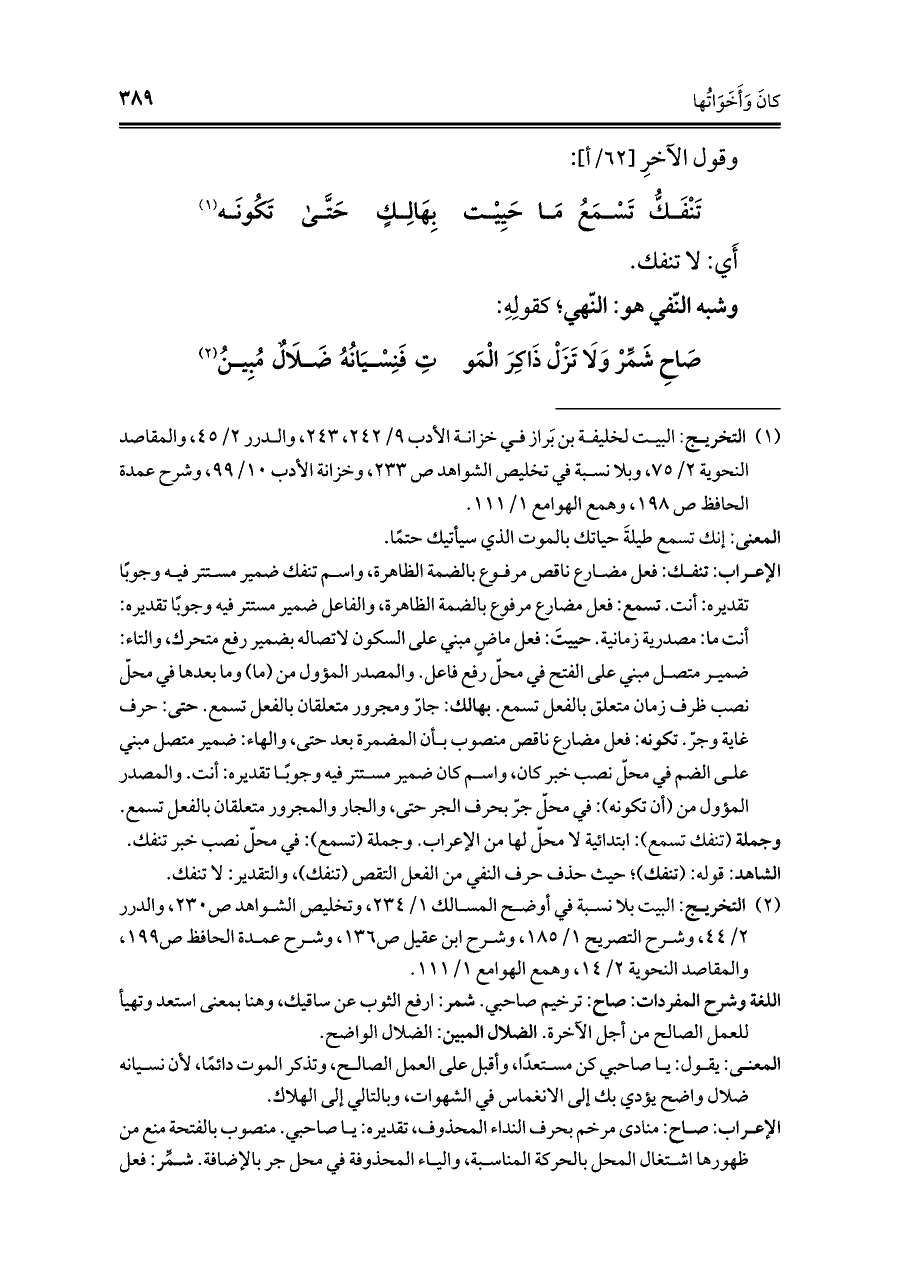 كانَ وَأَخَوَاتُها ٣٨٩
وقول الآخرِ [٦٢/ أ]:
تَنْفَـكُّ تَسْـمَعُ مَـا حَيِيْـت بِهَالِـكٍ حَتَّـىٰ تَكُونَـه(١)
أَي: لا تنفك.
وشبه النّفي هو: النّهي؛ كقولِهِ:
صَاحِ شَمِّرْ وَلَا تَزَلْ ذَاكِرَ الْمَو تِ فَنِسْـيَانُهُ ضَـلَالٌ مُبِيـنُ(٢)
(١) التخريـج: البيـت لخليفـة بن بَراز فـي خزانـة الأدب ٩/ ٢٤٢، ٢٤٣، والـدرر ٢/ ٤٥، والمقاصد
النحوية ٢/ ٧٥، وبلا نسبة في تخليص الشواهد ص ٢٣٣، وخزانة الأدب ١٠/ ٩٩، وشرح عمدة
الحافظ ص ١٩٨، وهمع الهوامع ١/ ١١١.
المعنى: إنك تسمع طيلةَ حياتك بالموت الذي سيأتيك حتمًا.
الإعـراب: تنفـك: فعل مضـارع ناقص مرفـوع بالضمة الظاهرة، واسـم تنفك ضمير مسـتتر فيـه وجوبًا
تقديره: أنت. تسمع: فعل مضارع مرفوع بالضمة الظاهرة، والفاعل ضمير مستتر فيه وجوبًا تقديره:
أنت ما: مصدرية زمانية. حييتَ: فعل ماضٍ مبني على السكون لاتصاله بضمير رفع متحرك، والتاء:
ضميـر متصـل مبني على الفتح في محلّ رفع فاعل. والمصدر المؤول من (ما) وما بعدها في محلّ
نصب ظرف زمان متعلق بالفعل تسمع. بهالك: جارّ ومجرور متعلقان بالفعل تسمع. حتى: حرف
غاية وجرّ. تكونه: فعل مضارع ناقص منصوب بـأن المضمرة بعد حتى، والهاء: ضمير متصل مبني
علـى الضم في محلّ نصب خبر كان، واسـم كان ضمير مسـتتر فيه وجوبًـا تقديره: أنت. والمصدر
المؤول من (أن تكونه): في محلّ جرّ بحرف الجر حتى، والجار والمجرور متعلقان بالفعل تسمع.
وجملة (تنفك تسمع): ابتدائية لا محلّ لها من الإعراب. وجملة (تسمع): في محلّ نصب خبر تنفك.
الشاهد: قوله: (تنفك)؛ حيث حذف حرف النفي من الفعل التقص (تنفك)، والتقدير: لا تنفك.
(٢) التخريـج: البيت بلا نسـبة في أوضـح المسـالك ١/ ٢٣٤، وتخليص الشـواهد ص٢٣٠، والدرر
٢/ ٤٤، وشـرح التصريح ١/ ١٨٥، وشـرح ابن عقيل ص١٣٦، وشـرح عمـدة الحافظ ص١٩٩،
والمقاصد النحوية ٢/ ١٤، وهمع الهوامع ١/ ١١١.
اللغة وشرح المفردات: صاح: ترخيم صاحبي. شمر: ارفع الثوب عن ساقيك، وهنا بمعنى استعد وتهيأ
للعمل الصالح من أجل الآخرة. الضلال المبين: الضلال الواضح.
المعنـى: يقـول: يـا صاحبي كن مسـتعدًا، وأقبل على العمل الصالـح، وتذكر الموت دائمًا، لأن نسـيانه
ضلال واضح يؤدي بك إلى الانغماس في الشهوات، وبالتالي إلى الهلاك.
الإعـراب: صـاح: منادى مرخم بحرف النداء المحذوف، تقديره: يـا صاحبي. منصوب بالفتحة منع من
ظهورها اشـتغال المحل بالحركة المناسـبة، واليـاء المحذوفة في محل جر بالإضافة. شـمِّر: فعل